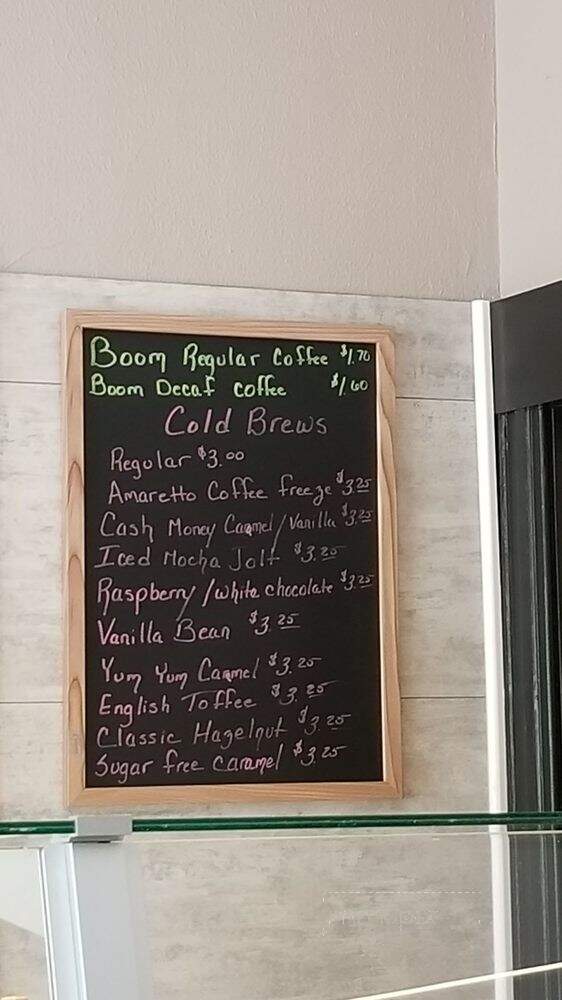 Boom Regular Coffee $1.70
Boom Decaf coffee $1.60
Cold Brews
Regular $3.00
Amaretto Coffee freeze $3.25
Cash Money Caramel/Vanilla $3.25
Iced Mocha Jolt $3.25
Raspberry/white chocolate $3.25
Vanilla Bean $3.25
Yum Yum Caramel $3.25
English Toffee $3.25
Classic Hazelnut $3.25
Sugar free caramel $3.25